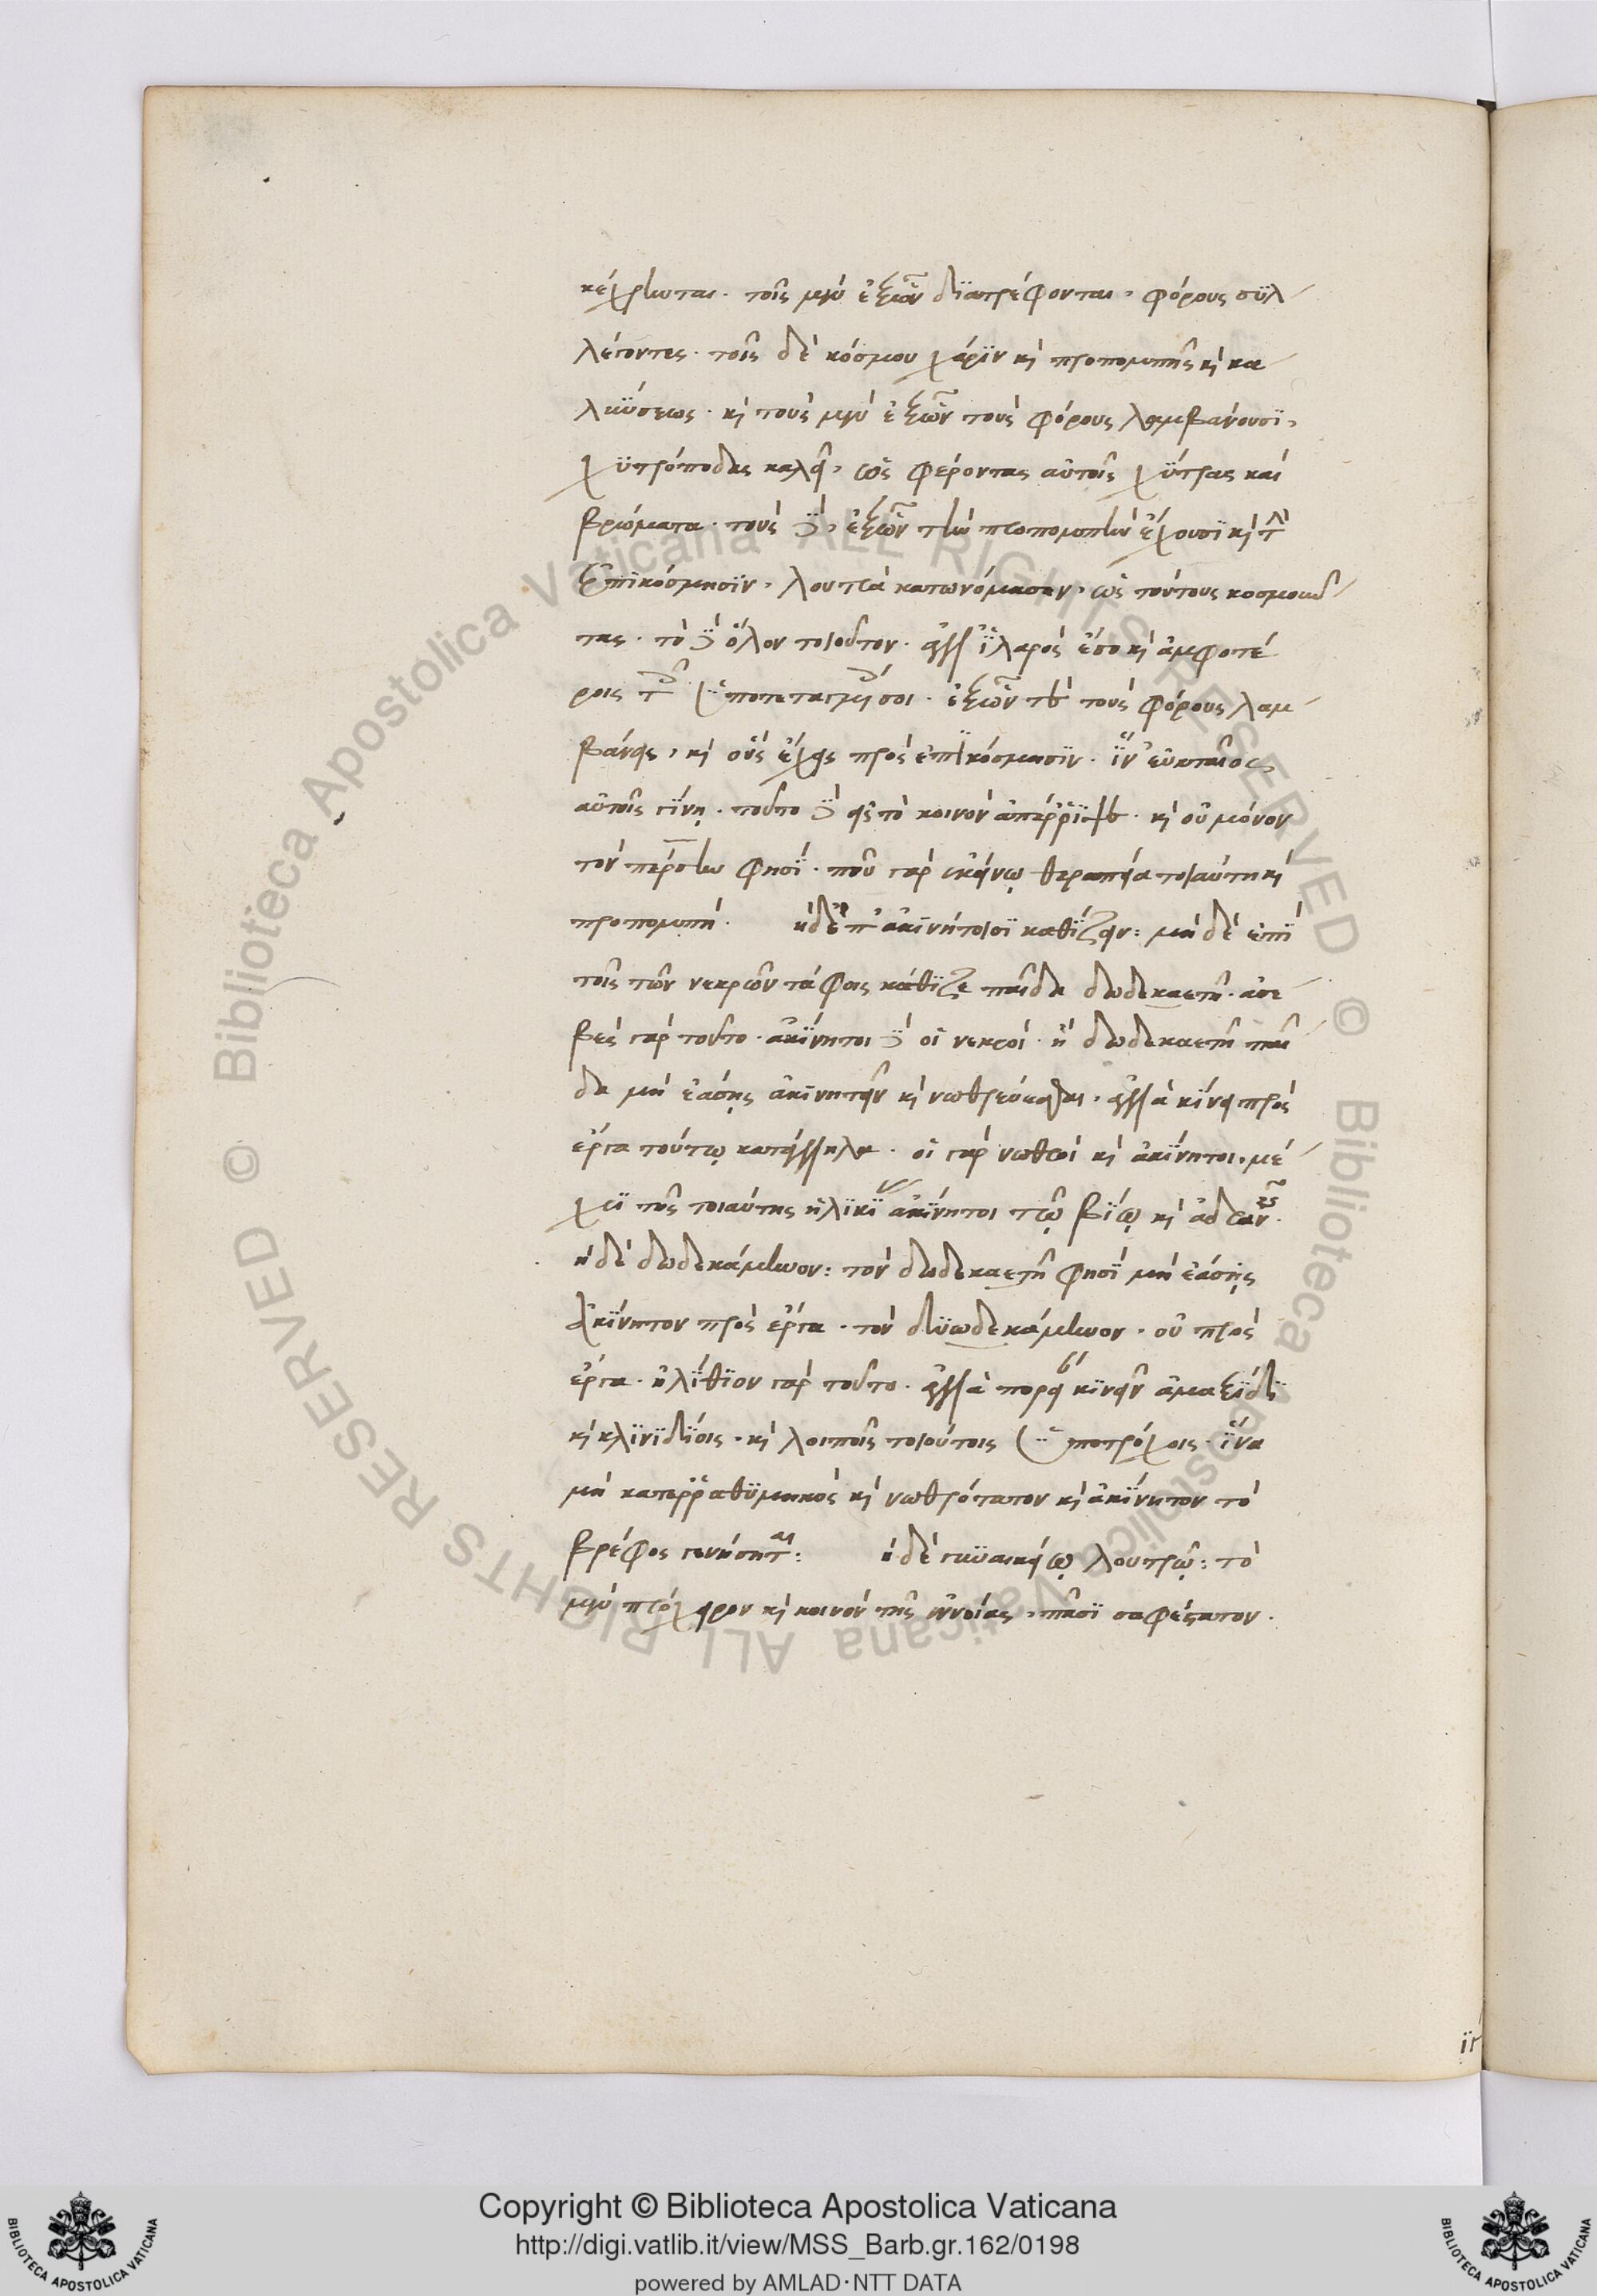 κέχρηνται. τοῖς μὲν ἐξ ὧν διατρέφονται, φόρους συλ
λέγοντες. τοῖς δὲ κόσμου χάριν καὶ προπομπῆς καὶ κα
λύσεως. καὶ τοὺς μὲν ἐξ ὧν τοὺς φόρους λαμβάνουσι,
χυτρόποδας καλεῖ, ὡς φέροντας αὐτοῖς χύτρας καὶ
βρώματα. τοὺς δὲ, ἐξ ὧν τὴν προπομπὴν ἔχουσι καὶ τὴν
ἐπικόσμησιν, λουτρὰ κατωνόμασεν, ὡς τούτους κοσμοῦν
τας. τὸ δὲ ὅλον τοιοῦτον. ἀλλ' ἱλαρὸς ἔσο καὶ ἀμφοτέ
ροις τῶν ὑποτεταγμένων σοι. ἐξ ὧν τε τοὺς φόρους λαμ
βάνεις, καὶ οὓς ἔχεις πρὸς ἐπικόσμησιν. ἵν' εὐκταῖος
αὐτοῖς γίνῃ. τοῦτο δὲ εἰς τὸ κοινὸν ἀπέρριψε. καὶ οὐ μόνον
τὸν πέρσην φησί. ποῦ γὰρ ἐκείνῳ θεραπεία τοιαύτη καὶ
προπομπή. μηδ' ἐπ' ἀκινήτοισι καθίζειν: μὴ δὲ ἐπὶ
τοῖς τῶν νεκρῶν τάφοις κάθιζε παῖδα δωδεκαετῆ. ἀσε
βὲς γὰρ τοῦτο. ἀκίνητοι δὲ οἱ νεκροί. ἢ δωδεκαετῆ παῖ
δα μὴ ἐάσῃς ἀκινητεῖν καὶ νωθρεύεσθαι, ἀλλὰ κίνει πρὸς
ἔργα τούτῳ κατάλληλα. οἱ γὰρ νωθροὶ καὶ ἀκίνητοι, μέ
χρι τῆς τοιαύτης ἡλικίας ἀκίνητοι τῷ βίῳ καὶ ἀδρανεῖς.
μηδὲ δωδεκάμηνον: τὸν δωδεκαετῆ φησὶ μὴ ἐάσῃς
ἀκίνητον πρὸς ἔργα. τὸν δυωδεκάμηνον, οὐ πρὸς
ἔργα. ἠλίθιον γὰρ τοῦτο. ἀλλὰ πορείᾳ κινεῖν ἁμαξιδί
καὶ κλινιδίοις, καὶ λοιποῖς τοιούτοις ὑποτρόχοις. ἵνα
μὴ κατερραθυμηκὸς καὶ νωθρότατον καὶ ἀκίνητον τὸ
βρέφος γενήσηται: μηδὲ γυναικείῳ λουτρῷ: τὸ
μὲν πρόχειρον καὶ κοινὸν τῆς ἐννοίας, πᾶσι σαφέστατον.
Copyright © Biblioteca Apostolica Vaticana
http://digi.vatlib.it/view/MSS_Barb.gr.162/0198
powered by AMLAD·NTT DATA
BIBLIOTECA APOSTOLICA VATICANA
BIBLIOTECA APOSTOLICA VATICANA
© Biblioteca Apostolica Vaticana ALL RIGHTS RESERVED
© Biblioteca Apostolica Vaticana ALL RIGHTS RESERVED